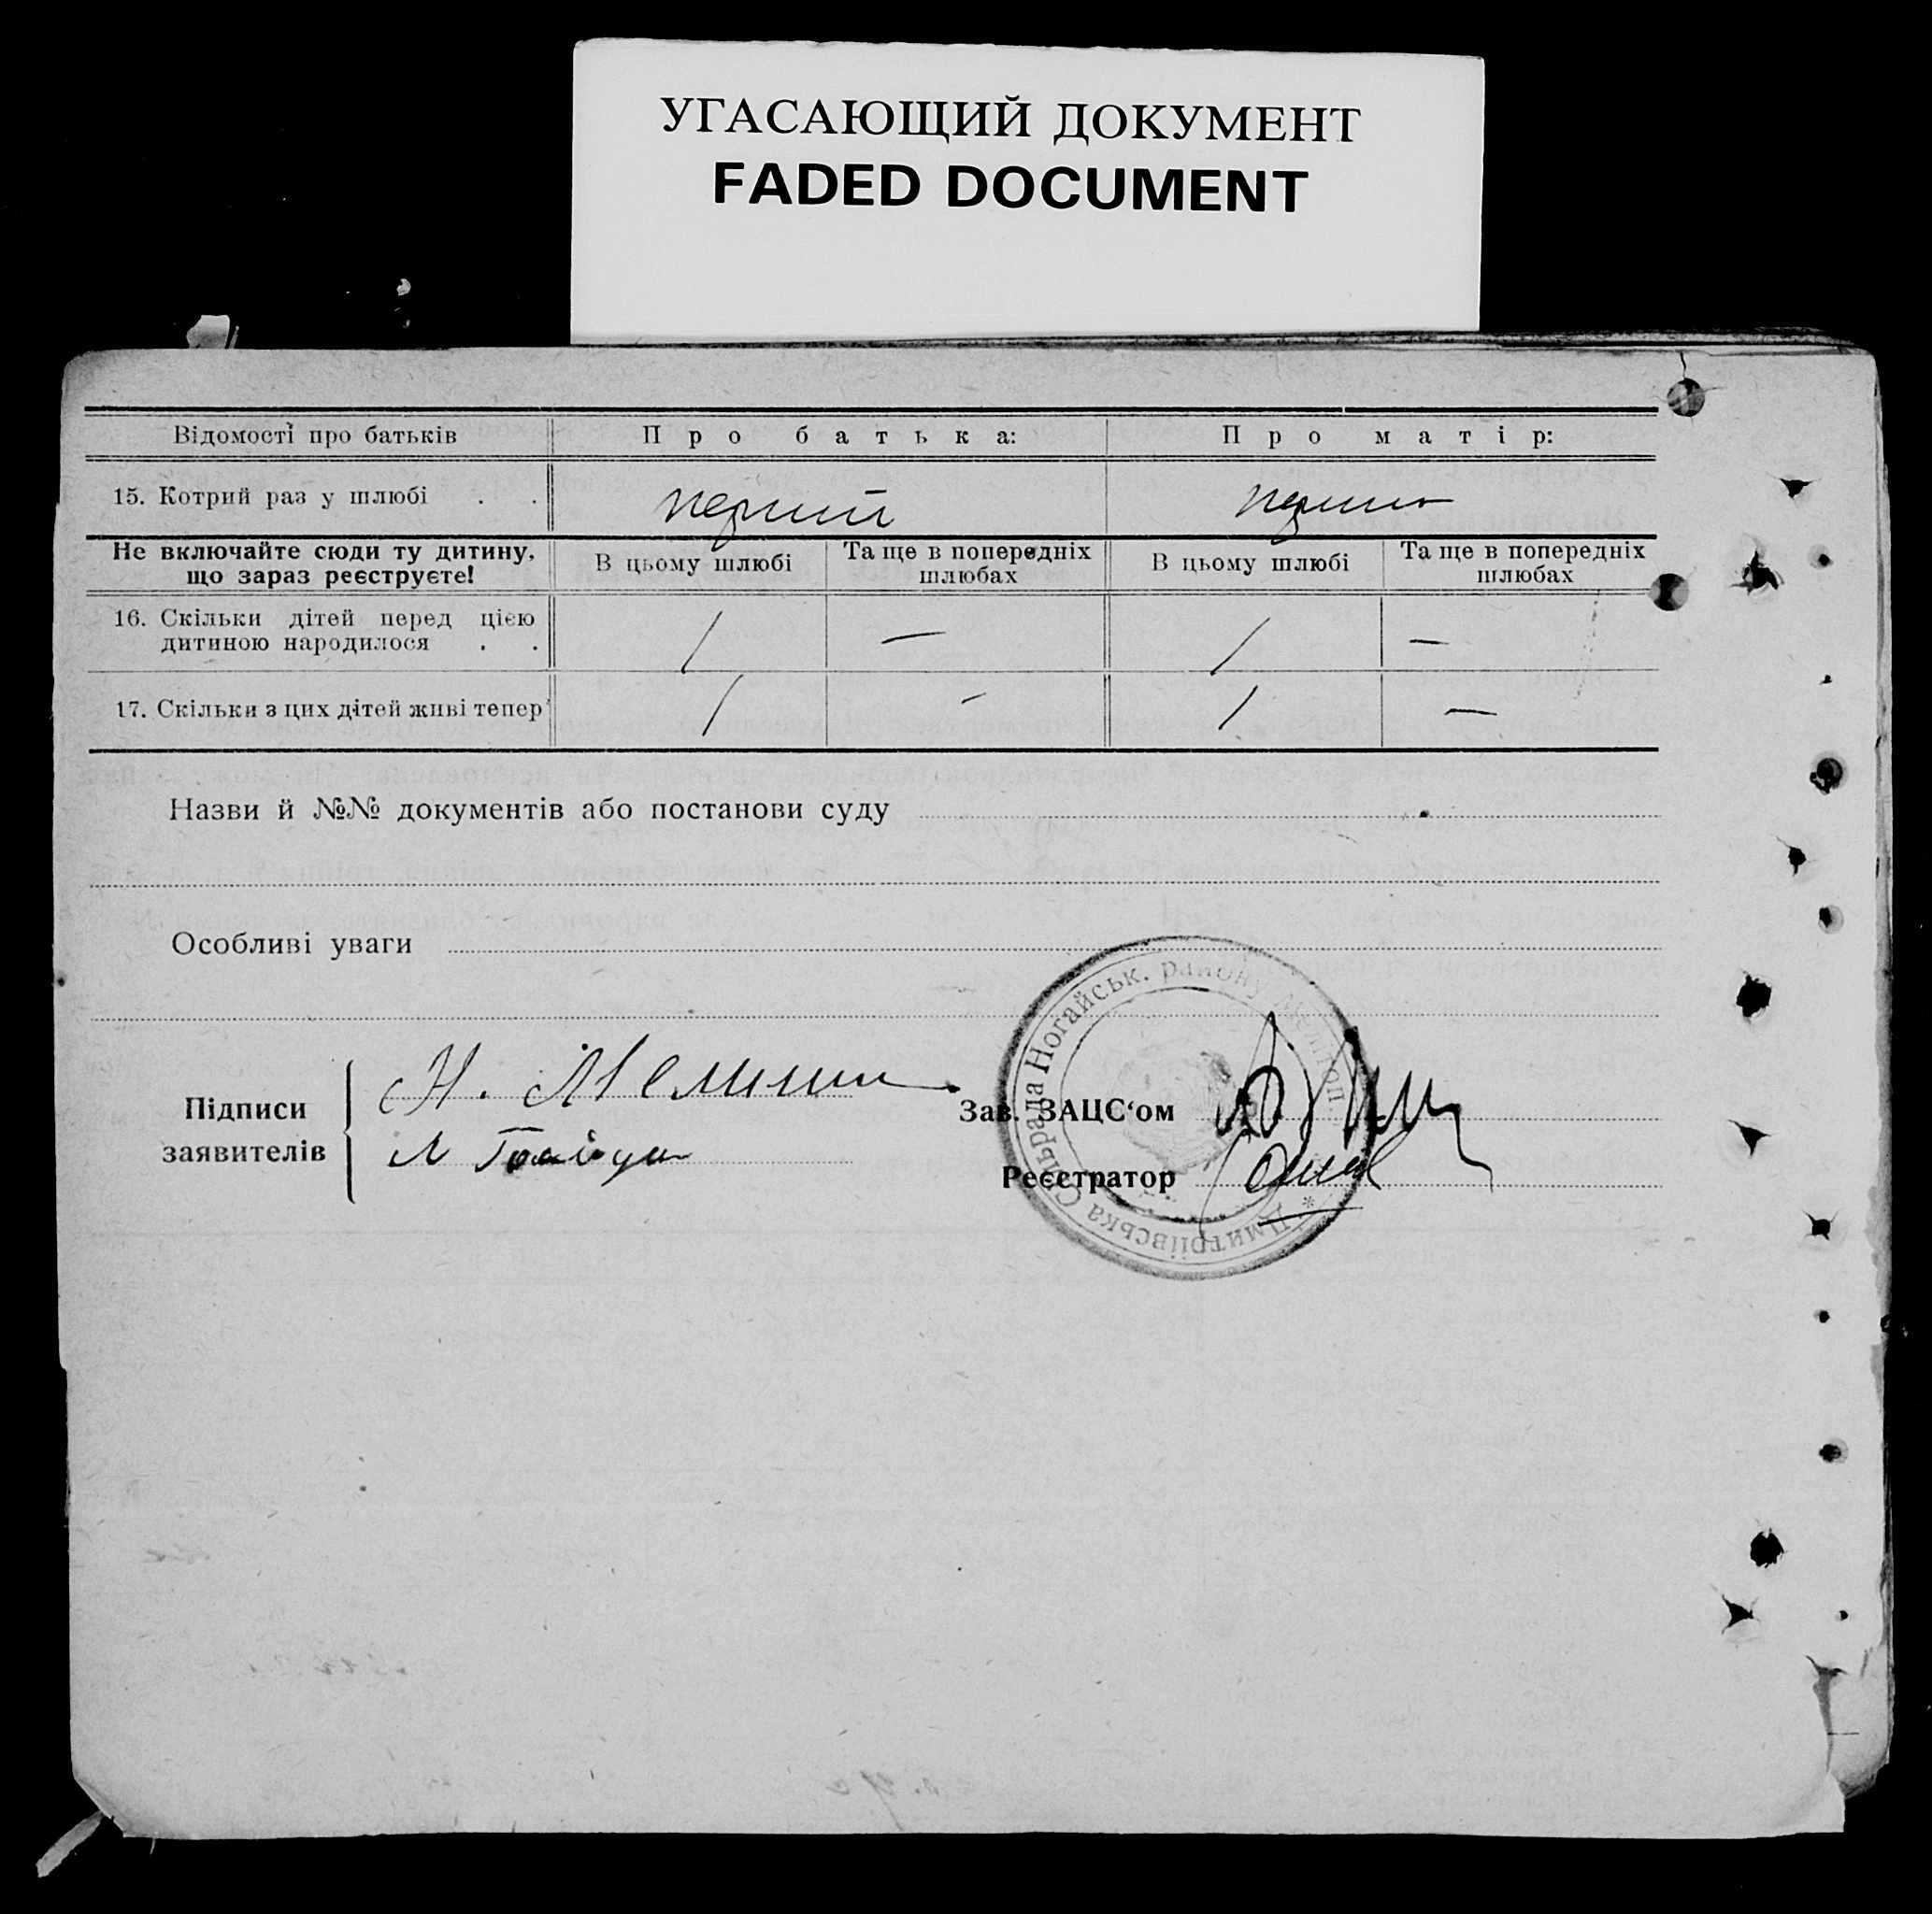 УГАСАЮЩИЙ ДОКУМЕНТ
FADED DOCUMENT
Відомості про батьків
Про батька:
Про матір:
15. Котрий раз у шлюбі . .
перший
Не включайте сюди ту дитину,
що зараз реєструєте!
В цьому шлюбі
Та ще в попередніх
шлюбах
В цьому шлюбі
Та ще в попередніх
шлюбах
16. Скільки дітей перед цією
дитиною народилося . .
/
—
/
—
17. Скільки з цих дітей живі тепер
/
-
/
—
Назви й №№ документів або постанови суду
Особливі уваги
Підписи
заявителів
Н.
Зав. ЗАЦС‘ом
Реєстратор
* Дмитріївська Сільрада Ногайськ. району